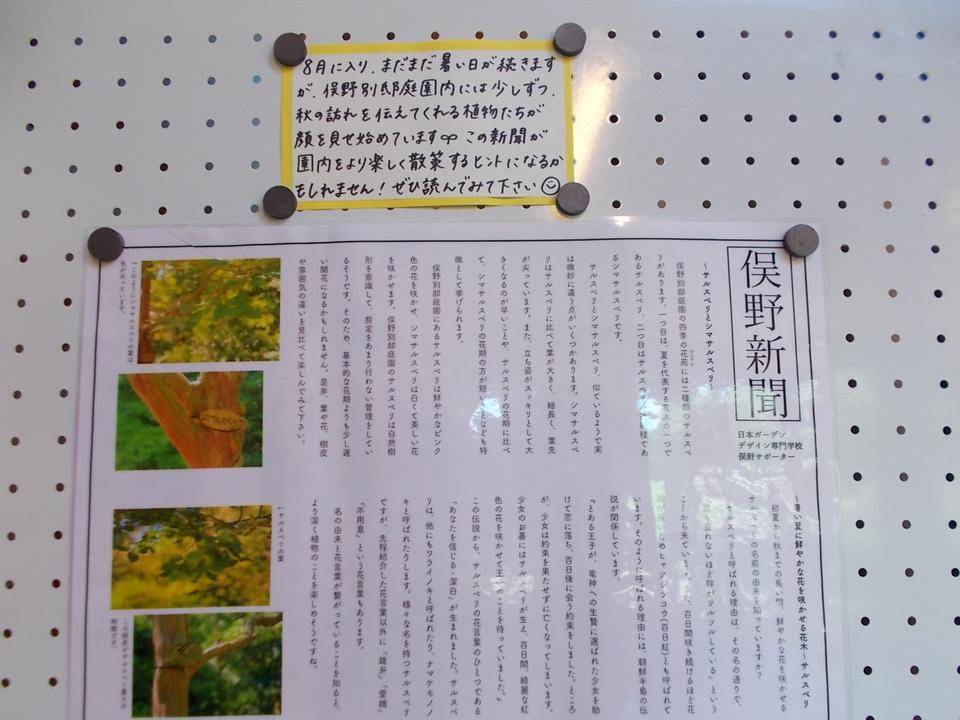 8月に入り、まだまだ暑い日が続きます
が、俣野別邸庭園内には少しずつ、
秋の訪れを伝えてくれる植物たちが
顔を見せ始めています∞ この新聞が
園内をより楽しく散策するヒントになるか
もしれません！ぜひ読んでみて下さい☺
俣野新聞
日本ガーデン
デザイン専門学校
俣野サポーター
～サルスベリとシマサルスベリ～
俣野別邸庭園の四季の花苑には二種類のサルスベ
リがあります。一つ目は、夏を代表する花木の一つで
あるサルスベリ、二つ目はサルスベリの
るシマサルスベリです。
サルスベリとシマサルスベリ、似ているようで実
は微妙に違う点がいくつかあります。シマサルスベ
リはサルスベリに比べて葉が大きく、細長く、葉先
が尖っています。また、立ち姿がスッキリとして大
きくなるのが早いことや、サルスベリの花期に比べ
て、シマサルスベリの花期の方が短いことなども特
徴として挙げられます。
俣野別邸庭園にあるサルスベリは鮮やかなピンク
色の花を咲かせ、シマサルスベリは白くて美しい花
を咲かせます。俣野別邸庭園のサルスベリは自然樹
形を意識して、剪定をあまり行わない管理をしてい
るそうです。そのため、基本的な花期よりも少し遅
い開花になるかもしれません。是非、葉や花、樹皮
や雰囲気の違いを見比べて楽しんでみて下さい。
↑このようにシマサルスベリの葉は
先が尖っています。
～暑い夏に鮮やかな花を咲かせる花木～サルスベリ
初夏から秋までの長い間、鮮やかな花を咲かせる
サルスベリの名前の由来を知っていますか？
サルスベリと呼ばれる理由は、その名の通りで、
れないほど幹がツルツルしている」という
ことから来ています。また、百日間咲き続けるほど花
ためヒャクジツコウ(百日紅)とも呼ばれて
います。そのように呼ばれる理由には、朝鮮半島の伝
説が関係しています。
『とある王子が、竜神への生贄に選ばれた少女を助
けて恋に落ち、百日後に会う約束をしました。ところ
が、少女は約束を果たせずに亡くなってしまいます。
少女のお墓にはサルスベリが生え、百日間、綺麗な紅
色の花を咲かせて王子のことを待っていました。』
この伝説から、サルスベリの花言葉のひとつである
「あなたを信じる・潔白」が生まれました。サルスベ
リは、他にもワライノキと呼ばれたり、ナマケモノノ
キと呼ばれたりします。様々な名を持つサルスベリ
ですが、先程紹介した花言葉以外に「雄弁」「愛嬌」
「不用意」という花言葉もあります。
名の由来と花言葉が繋がっていることを知ると、
より深く植物のことを楽しめそうですね。
↓サルスベリの葉
特徴です。